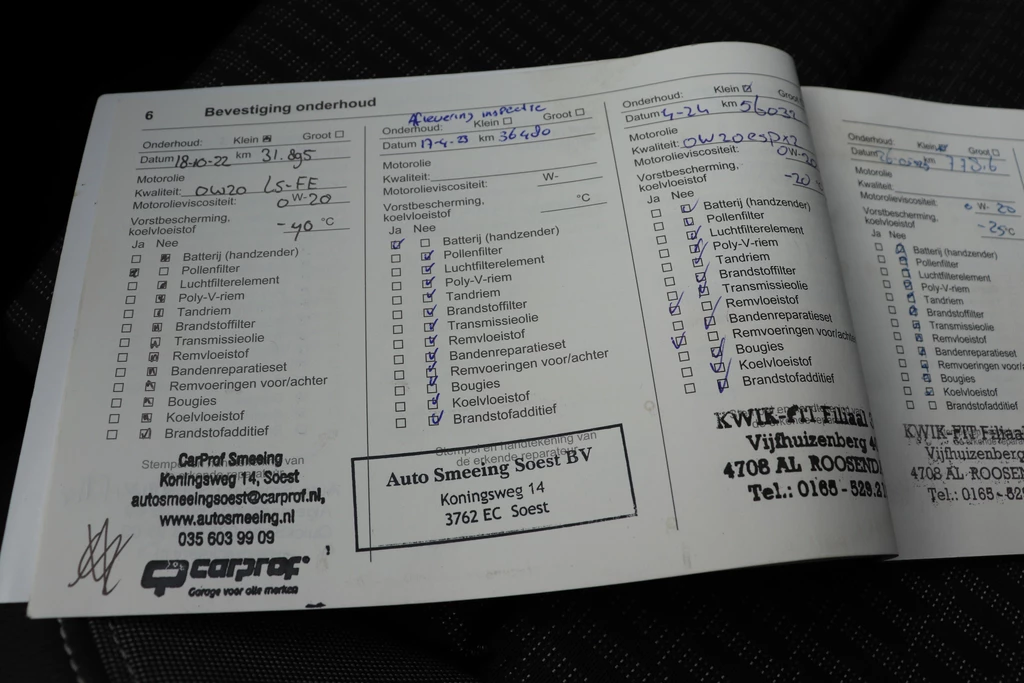 6 Bevestiging onderhoud
Onderhoud: Klein Groot
Datum 18-10-22 km 31.895
Motorolie
Kwaliteit: 0W20 LS-FE
Motorolieviscositeit: 0W-20
Vorstbescherming,
koelvloeistof -40 °C
Ja Nee
Batterij (handzender)
Pollenfilter
Luchtfilterelement
Poly-V-riem
Tandriem
Brandstoffilter
Transmissieolie
Remvloeistof
Bandenreparatieset
Remvoeringen voor/achter
Bougies
Koelvloeistof
Brandstofadditief
CarProf Smeeing
Koningsweg 14, Soest
autosmeeingsoest@carprof.nl,
www.autosmeeing.nl
035 603 99 09
carprof
Garage voor alle merken
Aflevering inspectie
Onderhoud: Klein Groot
Datum 17-4-23 km 36480
Motorolie
Kwaliteit:
Motorolieviscositeit: W-
Vorstbescherming,
koelvloeistof °C
Ja Nee
Batterij (handzender)
Pollenfilter
Luchtfilterelement
Poly-V-riem
Tandriem
Brandstoffilter
Transmissieolie
Remvloeistof
Bandenreparatieset
Remvoeringen voor/achter
Bougies
Koelvloeistof
Brandstofadditief
Stempel en handtekening van
de erkende reparateur
Auto Smeeing Soest BV
Koningsweg 14
3762 EC Soest
Onderhoud: Klein Groot
Datum 4-24 km
Motorolie
Kwaliteit: 0W20
Motorolieviscositeit: 0W-20
Vorstbescherming,
koelvloeistof -20
Ja Nee
Batterij (handzender)
Pollenfilter
Luchtfilterelement
Poly-V-riem
Tandriem
Brandstoffilter
Transmissieolie
Remvloeistof
Bandenreparatieset
Remvoeringen voor/achter
Bougies
Koelvloeistof
Brandstofadditief
KWIK-FIT Filiaal
Vijfhuizenberg
4708 AL ROOSEND
Tel.: 0165 - 529.
Onderhoud: Klein Groot
Datum km
Motorolie
Kwaliteit:
Motorolieviscositeit: 0 W- 20
Vorstbescherming,
koelvloeistof -25°C
Ja Nee
Batterij (handzender)
Pollenfilter
Luchtfilterelement
Poly-V-riem
Tandriem
Brandstoffilter
Transmissieolie
Remvloeistof
Bandenreparatieset
Remvoeringen voor/
Bougies
Koelvloeistof
Brandstofadditief
KWIK-FIT Filiaal
Vijfhuizenberg
4708 AL ROOSEN
Tel.: 0165 - 52